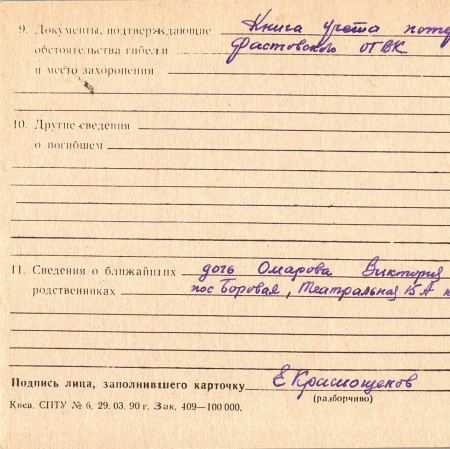 9. Документы, подтверждающие Книга учета
обстоятельства гибели Фастовского ОГВК
и место захоронения
10. Другие сведения
о погибшем
11. Сведения о ближайших дочь Омарова Виктория
родственниках пос Боровая, Театральная 15А
Подпись лица, заполнившего карточку Е Краснощеков
(разборчиво)
Киев. СПТУ № 6. 29. 03. 90 г. Зак. 409—100 000.